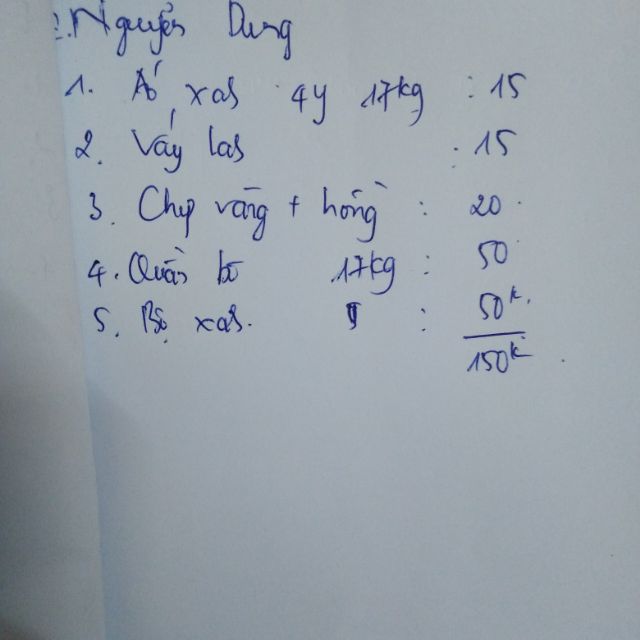 2. Nguyễn Dung
1. Áo xas 4y 17kg : 15
2. Váy las : 15
3. Chip vàng + hồng : 20
4. Quần bò 17kg : 50
5. Bộ xas. : 50k.
150k